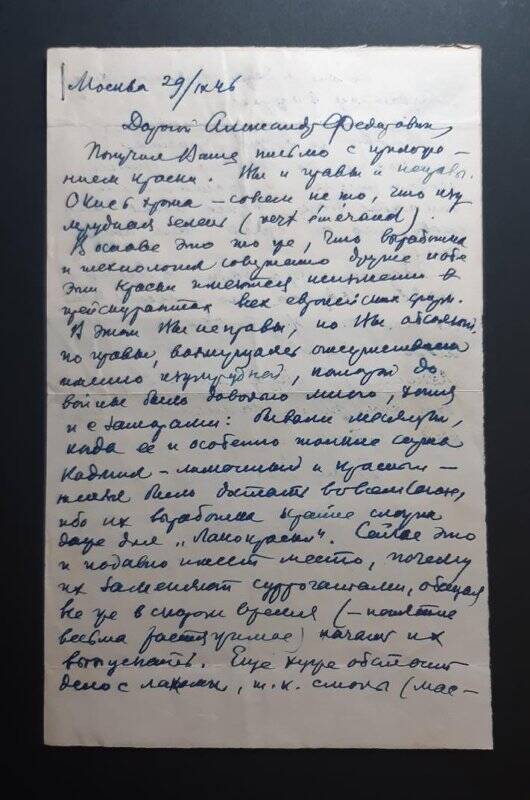 Москва 29/IX 46
Дорогой Александр Федорович,
Получил Ваше письмо с приложе-
нием краски. Вы и правы и неправы.
Окись хрома – совсем не то, что изу
мрудная зелень (vert émeraud).
В основе это то же, что выработка
и технология совершенно другие и обе
эти краски имеются неизменно в
прейскурантах всех европейских фирм.
В этом Вы неправы, но Вы абсолют
но правы, возмущаясь отсутствием
именно изумрудной, которой до
войны было довольно много, хотя
и с запозами: бывали месяцы,
когда ее и особенно тонкие сорта
кадмия – лимонный и красный –
нельзя было достать во всем Союзе,
ибо их выработка крайне сложна
даже для „Лакокраски". Сейчас это
и подавно имеет место, почему
их заменяют суррогатами, обещая
все же в скором времени (– понятие
весьма растяжимое) начать их
выпускать. Еще хуже обстоит
дело с лаками, т.к. смолы (мас-